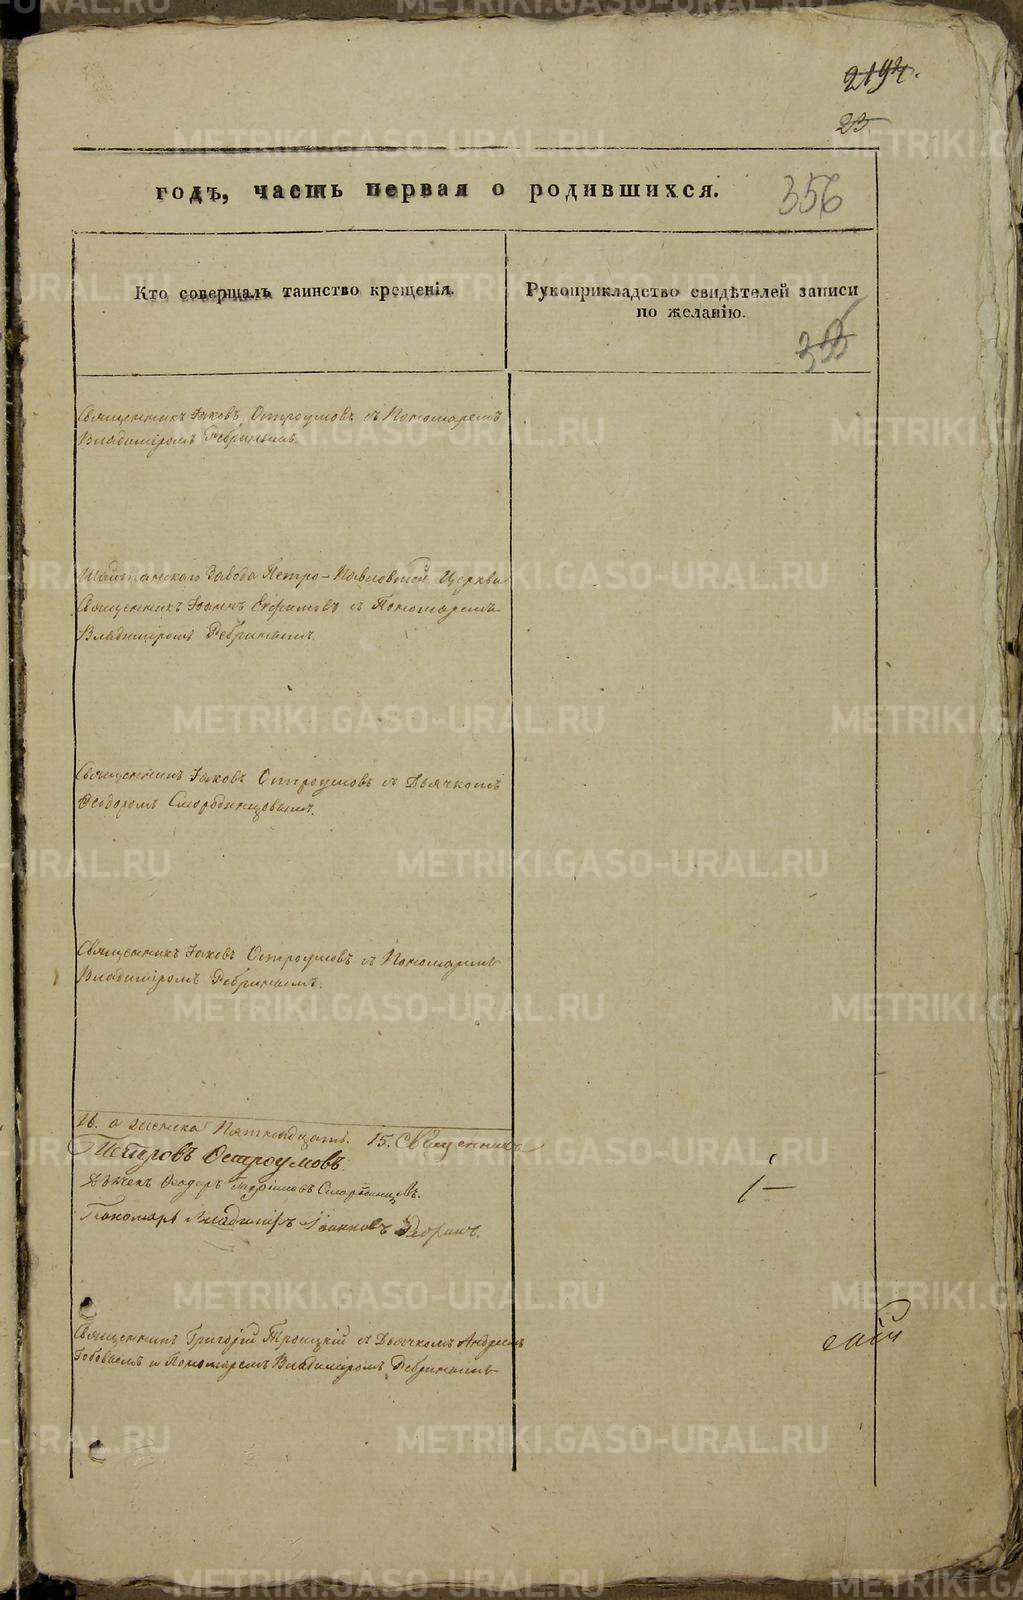 2194.
23
годъ, часть первая о родившихся.
356
Кто совершалъ таинство крещенія.
Рукоприкладство свидѣтелей записи
по желанію.
355
Священникъ Іаковъ Остроумовъ съ Пономаремъ
Владиміромъ Ребринымъ.
Шайтанскаго Завода Петро-Павловской Церкви
Священникъ Іоаннъ Ефимовъ съ Пономаремъ
Владиміромъ Ребринымъ.
Священникъ Іаковъ Остроумовъ съ Дьячкомъ
Ѳеодоромъ Смородинцовымъ.
Священникъ Іаковъ Остроумовъ съ Пономаремъ
Владиміромъ Ребринымъ.
16. а женска пятнадцать. 15. Священникъ
Остроумовъ.
Дьячекъ Ѳеодоръ Смородинцовъ.
Пономарь Владиміръ Іоанновъ Ребринъ.
1
Священникъ Григорій Троицкій съ Дьячкомъ Андреемъ
и Пономаремъ Владиміромъ Ребринымъ
METRIKI.GASO-URAL.RU